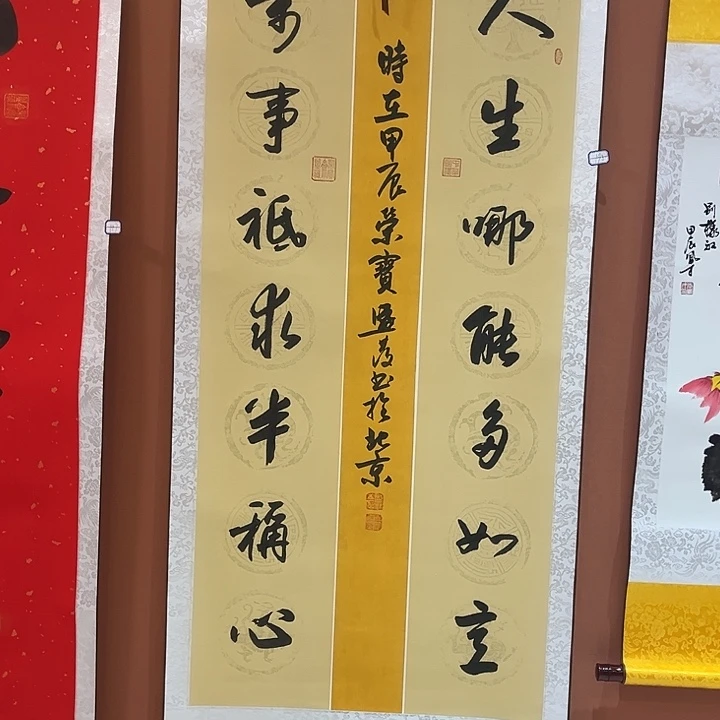 人生哪能多如意
時在甲辰榮寶書於北京
萬事祇求半稱心
別樣紅
甲辰